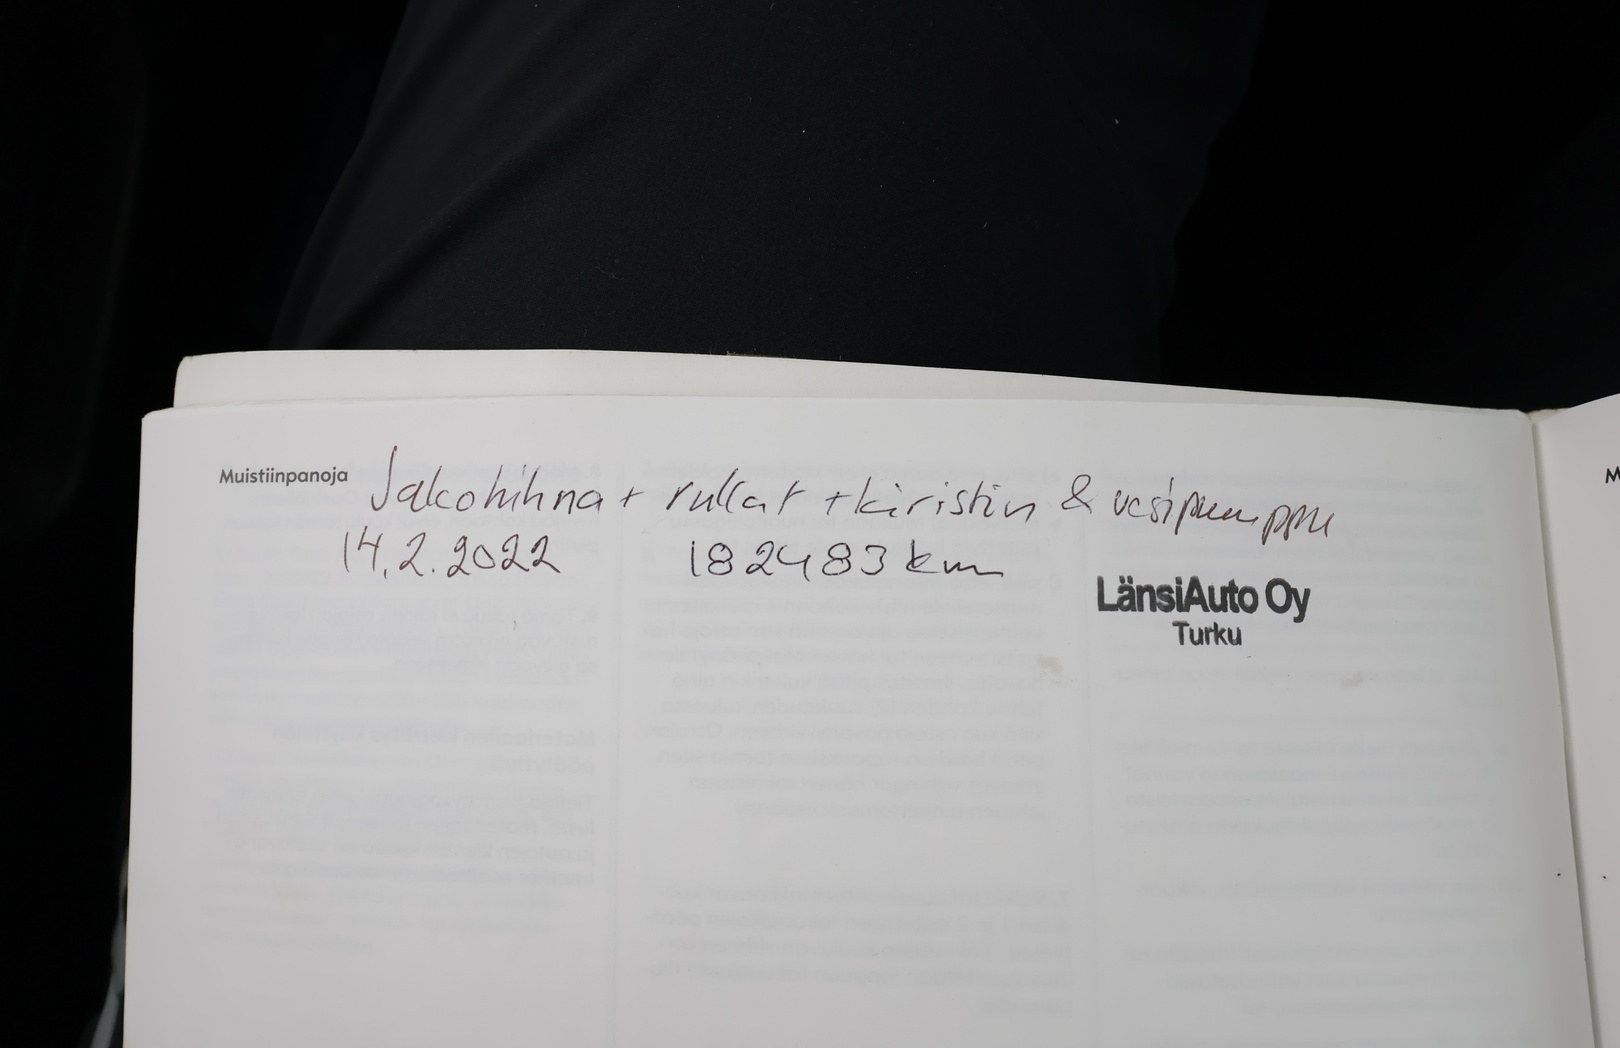 Muistiinpanoja
Jakohihna + rullat + kiristin & vesipumppu
14.2.2022 182483 km
LänsiAuto Oy
Turku
M